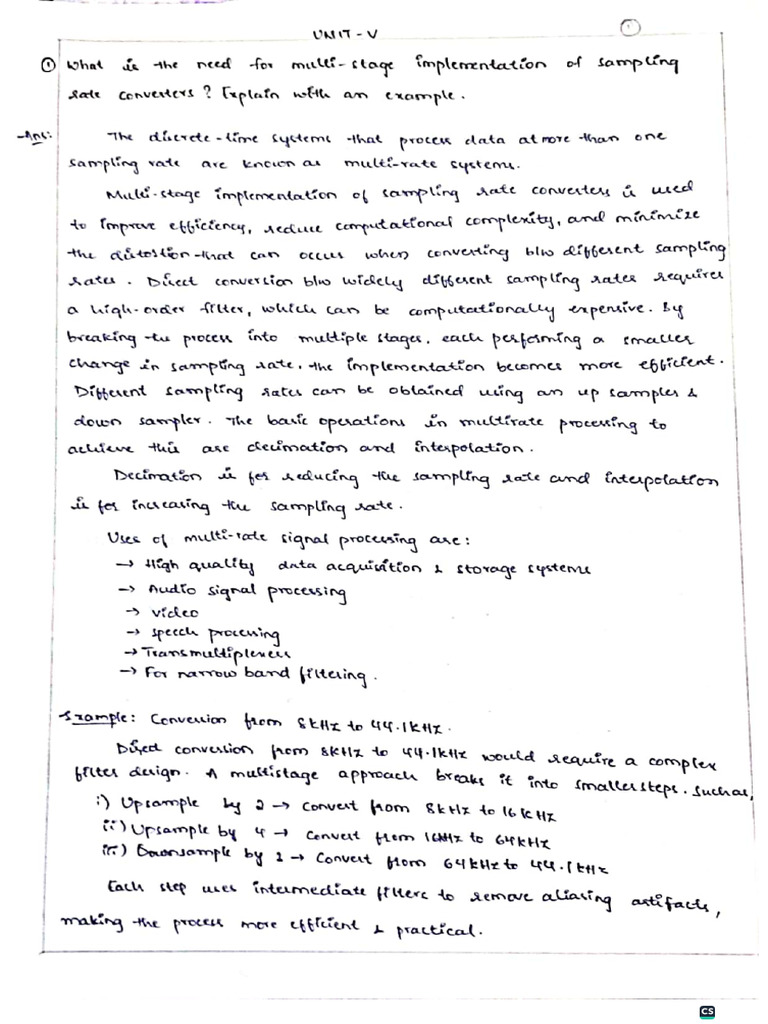 UNIT-V
1
① What is the need for multi-stage implementation of sampling
rate converters? Explain with an example.
Ans: The discrete-time systems that process data at more than one
sampling rate are known as multi-rate systems.
Multi-stage implementation of sampling rate converters is used
to improve efficiency, reduce computational complexity, and minimize
the distortion that can occur when converting b/w different sampling
rates. Direct conversion b/w widely different sampling rates requires
a high-order filter, which can be computationally expensive. By
breaking the process into multiple stages, each performing a smaller
change in sampling rate, the implementation becomes more efficient.
Different sampling rates can be obtained using an up sampler &
down sampler. The basic operations in multirate processing to
achieve this are decimation and interpolation.
Decimation is for reducing the sampling rate and interpolation
is for increasing the sampling rate.
Uses of multi-rate signal processing are:
→ High quality data acquisition & storage systems
→ Audio signal processing
→ video
→ speech processing
→ Transmultiplexers
→ For narrow band filtering.
Example: Conversion from 8kHz to 44.1kHz.
Direct conversion from 8kHz to 44.1kHz would require a complex
filter design. A multistage approach breaks it into smaller steps. Such as,
i) Upsample by 2 → Convert from 8kHz to 16kHz
ii) Upsample by 4 → Convert from 16kHz to 64kHz
iii) Downsample by 2 → Convert from 64kHz to 44.1kHz
Each step uses intermediate filters to remove aliasing artifacts,
making the process more efficient & practical.
CS